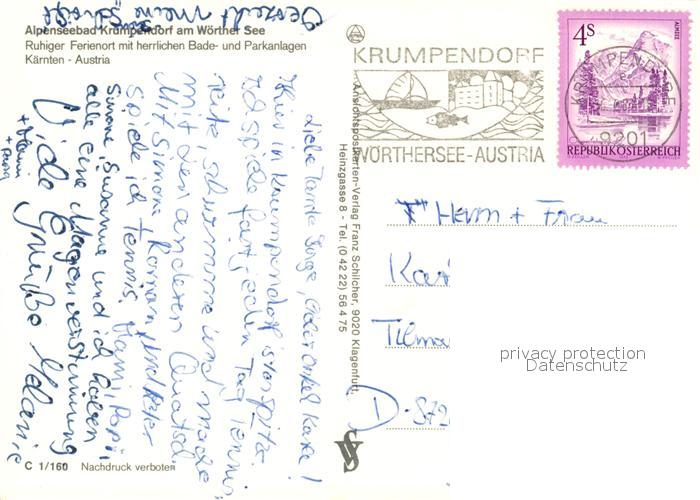 Alpenseebad Krumpendorf am Wörther See
Ruhiger Ferienort mit herrlichen Bade- und Parkanlagen
Kärnten - Austria
Liebe Tante Inge, lieber Onkel Karl!
Hier in Krumpendorf ist es spitze.
Ich spiele fast jeden Tag Tennis,
reite, schwimme und mache
mit den anderen Quatsch.
Mit Simone, Roman und Peter
spiele ich Tennis. Mami, Papi,
Simone, Susanne und ich haben
alle eine Magenverstimmung
Viele Grüße Melanie
+ Mami
+ Papi
C 1/160 Nachdruck verboten
Ansichtspostkarten-Verlag Franz Schilcher, 9020 Klagenfurt,
Heinzgasse 8 - Tel. (0 42 22) 56 4 75
KRUMPENDORF
WÖRTHERSEE-AUSTRIA
4S
ALMSEE
REPUBLIK ÖSTERREICH
KRUMPENDORF
9201
Herrn + Frau
Karl
Tilma
D-872
privacy protection
Datenschutz